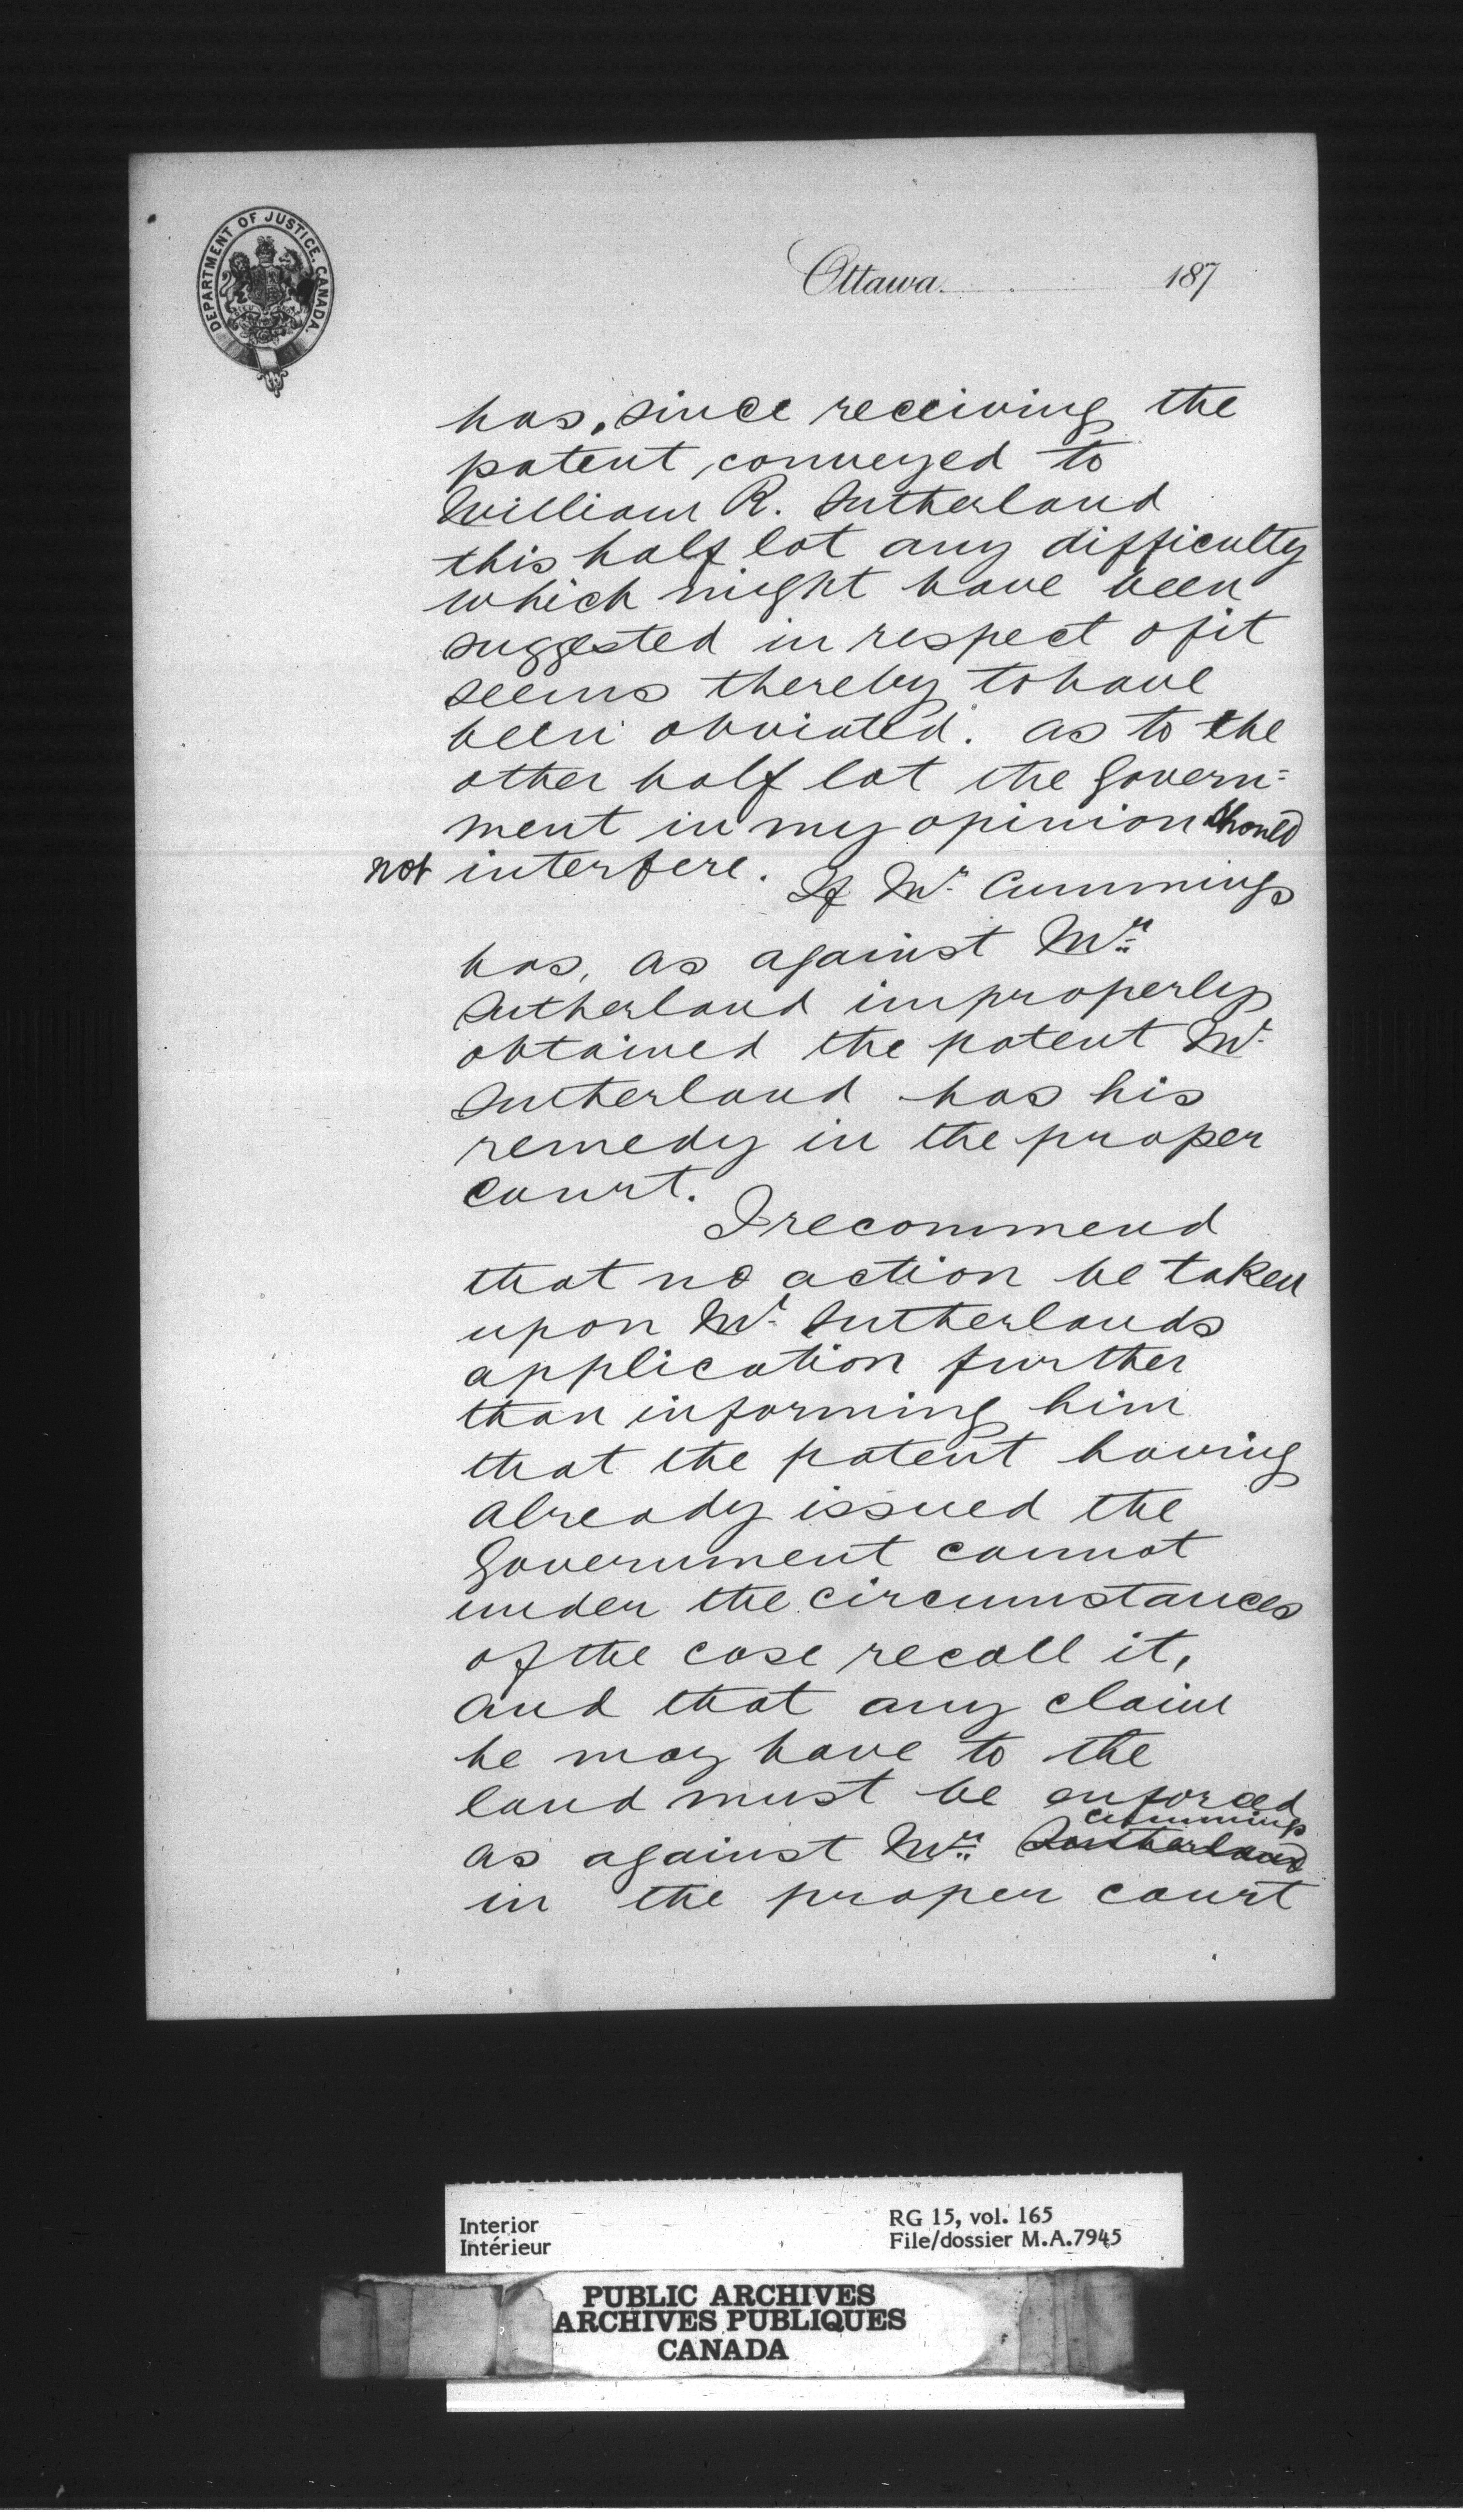 DEPARTMENT OF JUSTICE, CANADA.
Ottawa. 187
has, since receiving the
patent, conveyed to
William R. Sutherland
this half lot any difficulty
which might have been
suggested in respect of it
seems thereby to have
been obviated. as to the
other half lot the Govern=
ment in my opinion should
not interfere. If Mr. Cummings
has, as against Mr.
Sutherland improperly
obtained the patent Mr.
Sutherland has his
remedy in the proper
court.
I recommend
that no action be taken
upon Mr. Sutherlands
application further
than informing him
that the patent having
already issued the
Government cannot
under the circumstances
of the case recall it,
and that any claim
he may have to the
land must be enforced
Cummings
as against Mr. Sutherland
in the proper court
Interior
Intérieur
RG 15, vol. 165
File/dossier M.A.7945
PUBLIC ARCHIVES
ARCHIVES PUBLIQUES
CANADA